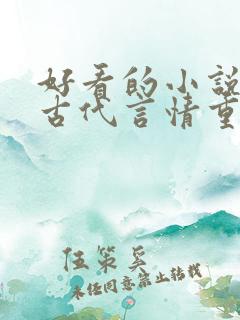 好看的小说
古代言情重
伍策奚
未经同意禁止转载